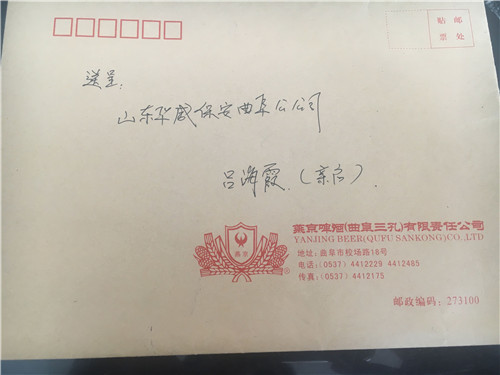 贴 邮
票 处
送呈:
山东华威保安曲阜公司
吕海霞 (亲启)
燕京
燕京啤酒(曲阜三孔)有限责任公司
YANJING BEER(QUFU SANKONG)CO.,LTD
地址:曲阜市校场路18号
电话:(0537) 4412229 4412485
传真:(0537) 4412175
邮政编码:273100